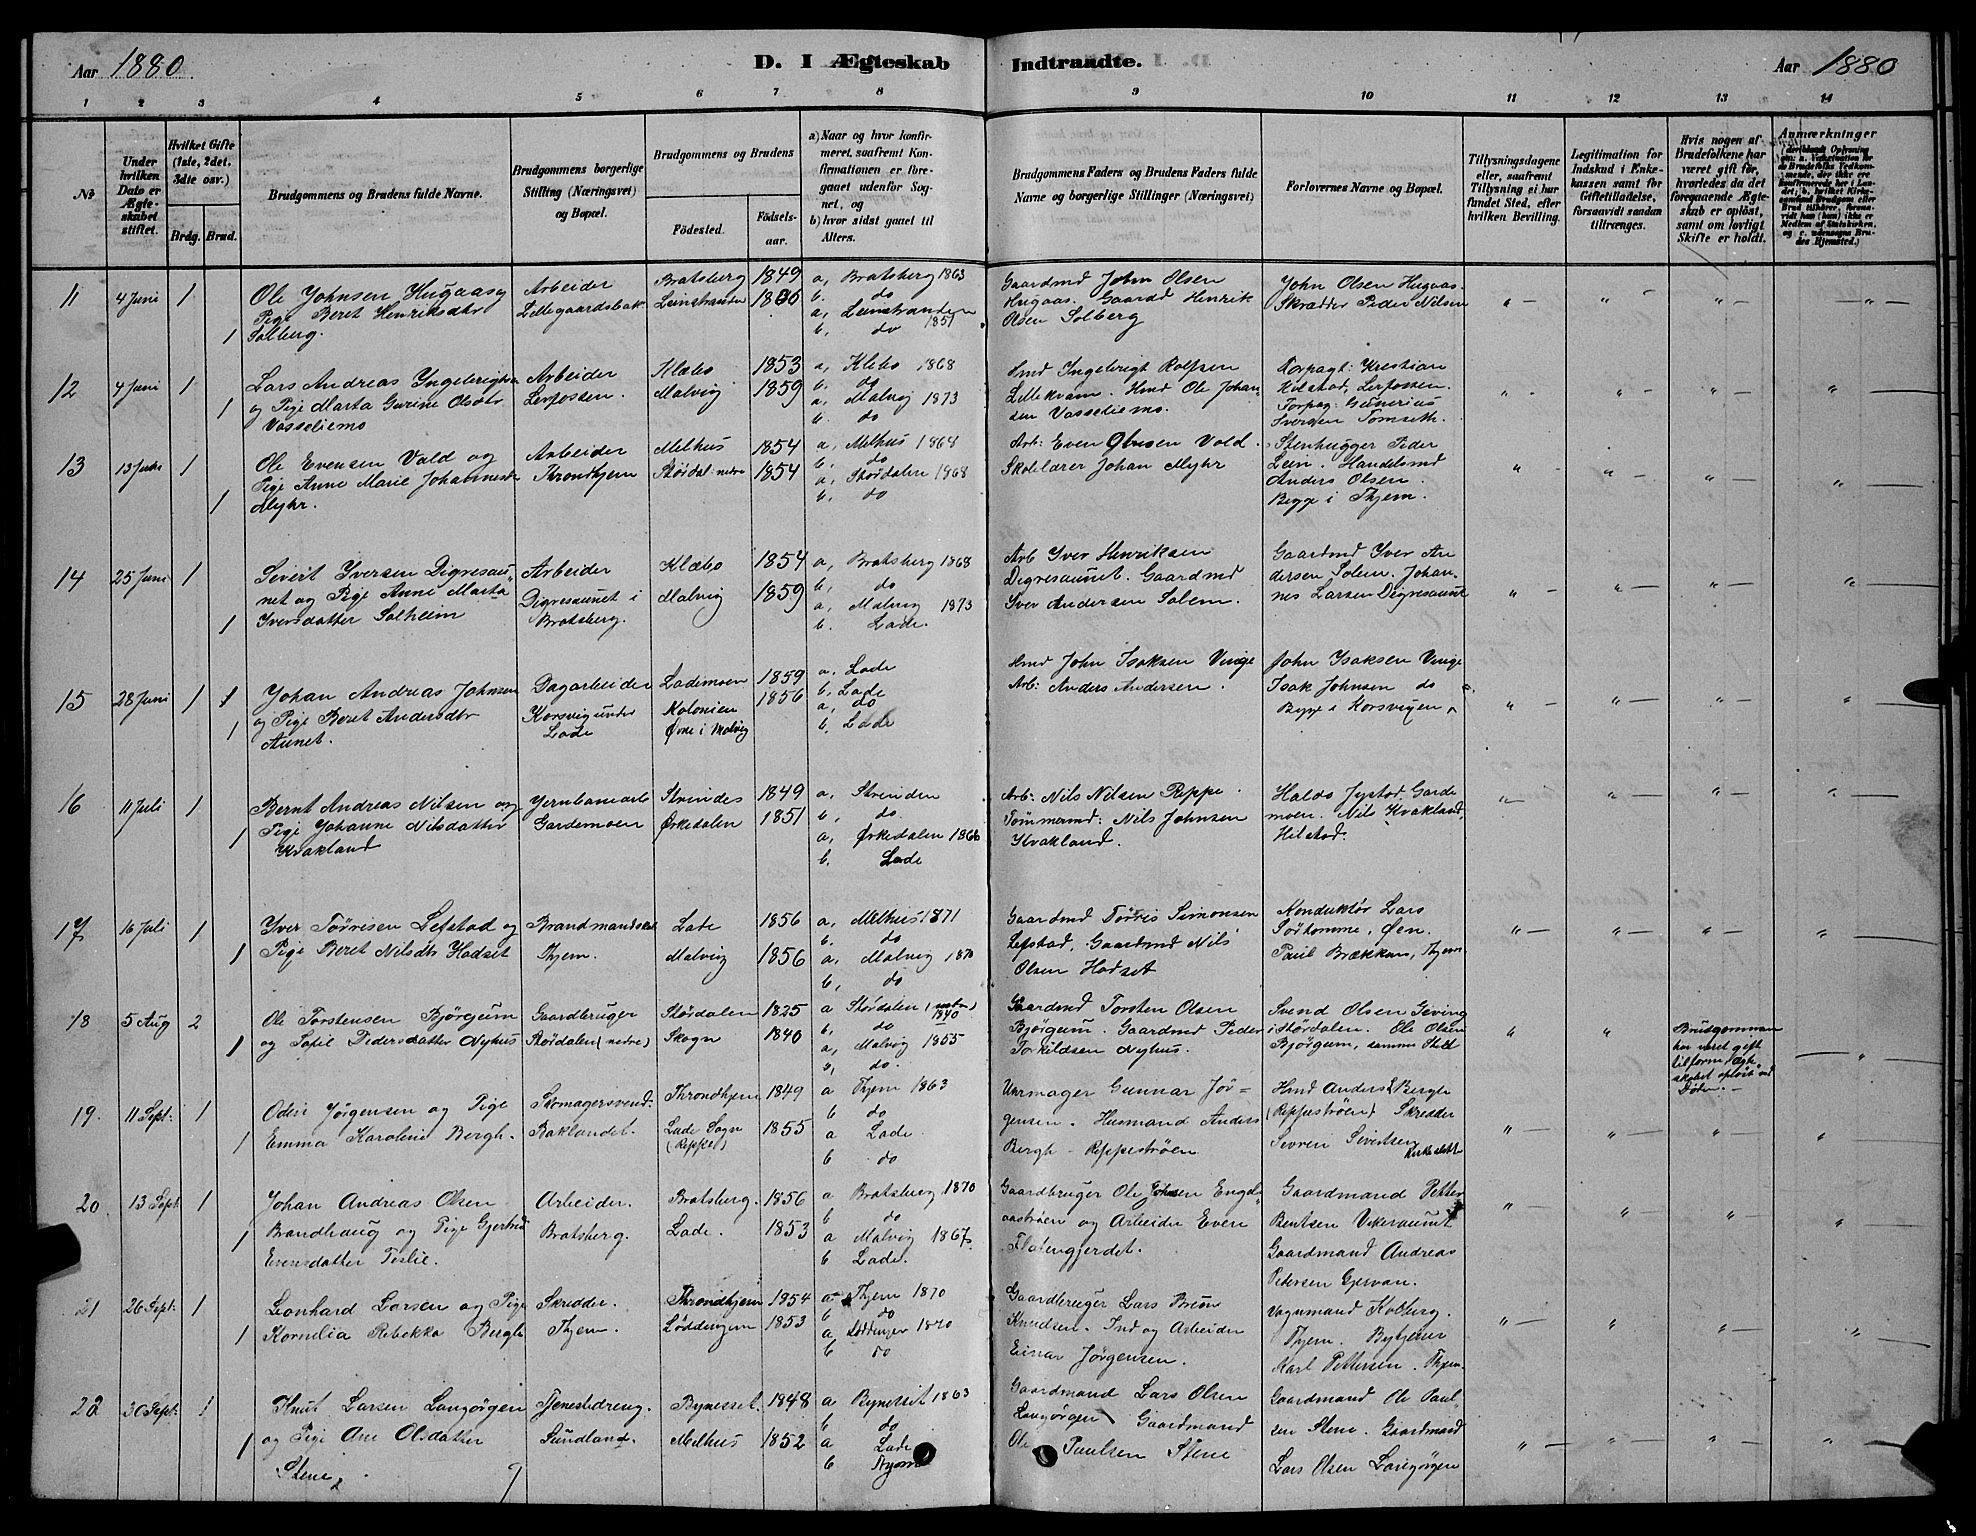 Aar 1880.
D. I Ægteskab Indtraadte.
Aar 1880
1 2 3 4 5 6 7 8 9 10 11 12 13 14
No
Under hvilken Dato er Ægteskabet stiftet.
Hvilket Gifte (1ste, 2det, 3dte osv.)
Brdg. Brud.
Brudgommens og Brudens fulde Navne.
Brudgommens borgerlige Stilling (Næringsvei) og Bopæl.
Brudgommens og Brudens
Fødested.
Fødselsaar.
a) Naar og hvor konfirmeret, saafremt Konfirmationen er foregaaet udenfor Sognet, og
b) hvor sidst gaaet til Alters.
Brudgommens Faders og Brudens Faders fulde Navne og borgerlige Stillinger (Næringsvei)
Forlovernes Navne og Bopæl.
Tillysningsdagene eller, saafremt Tillysning ei har fundet Sted, efter hvilken Bevilling.
Legitimation for Indskud i Enkekassen samt for Giftetilladelse, forsaavidt saadan tiltrænges.
Hvis nogen af Brudefolkene har været gift før, hvorledes da det foregaaende Ægteskab er opløst, samt om lovligt Skifte er holdt.
Anmærkninger
11 4 Juni 1
Ole Johnsen Hugaas og
Pige Beret Henriksdtr
1 Solberg.
Arbeider
Lillegaardsbak
Bratsberg 1849
Leinstranden
a, Bratsberg 1863
b. do
a, Leinstranden
b, do 1851
Gaardmd John Olsen
Hugaas. Gaardd Henrik
Olsen Solberg
John Olsen Hugaas.
Skrædder Peder Nilsen
12 4 Juni 1
Lars Andreas Ingebrigtsn
1 og Pige Marta Gurine Olsdtr
Vasseliemo
Arbeider
Lerfossen.
Klæbo 1853
Malvig 1859
a, Klebo 1868
b. do
a, Malvig 1873
b. do
Hmd Ingebrigt Rolfsen
Lillekvam. Hmd Ole Johan
sen Vasseliemo.
Forpagt: Kristian
Kolstad, Lerfossen.
Forpag: Gunerius
Iversen Tomseth.
13 13 Juni 1
Ole Evensen Vold og
Pige Anne Marie Johannesdr
1 Myhr.
Arbeider
Throndhjem
Melhus 1854
Størdal nedre 1854
a, Melhus 1868
b. do
a, Størdalen 1868
b, do
Arb: Even Olsen Vold.
Skolelærer Johan Myhr
Stenhugger Peder
Lein. Handelsmd
Anders Olsen.
Begge i Thjem.
14 25 Juni 1
Sivert Iversen Digresau
net og Pige Anne Marta
1 Iversdatter Solheim
Arbeider
Digresaunet i
Bratsberg.
Klæbo 1854
Malvig 1859
a, Bratsberg 1868
b, do
a, Malvig 1873
b. Lade.
Arb Iver Henriksen
Digresaunet. Gaardmd
Iver Andersen Solem.
Gaardmd Iver An
dersen Solem. Johan
nes Larsen Digresaunet
15 28 Juni 1 1
Johan Andreas Johnsen
og Pige Beret Andersdtr
1 Aunet.
Dagarbeider
Korsvig under
Lade
Lademoen 1859
Kolonien 1856
Øvre i Malvig
a. Lade
b. Lade
a, do
b, Lade
Hmd John Isaksen Vinge
Arb: Anders Andersen.
John Isaksen Vinge
Isak Johnsen do
Begge i Korsvigen
16 11 Juli 1
Bernt Andreas Nilsen og
1 Pige Johanne Nilsdatter
Kvakland
Jernbanearb
Gardemoen
Strindes 1849
Ørkedalen 1851
a, Strinden
b, do.
a, Ørkedalen 1866
b. Lade
Arb: Nils Nilsen Reppe.
Tømmermd: Nils Johnsen
Kvakland.
Haldo Jystad, Garde
moen. Nils Kvakland,
Hilstad.
17 16 Juli 1
Iver Tørrisen Lefstad og
1 Pige Beret Nilsdtr Hodset
Brandmandskst
Thjem.
Lade 1856
Malvig 1856
a, Melhus 1871
b. do
a, Malvig 1870
b, do
Gaardmd Tørris Simonsen
Lefstad, Gaardmd Nils
Olsen Hodset
Konduktør Lars
Sørhomme, Øen.
Paul Brækkan, Thjem
18 5 Aug 2
Ole Torstensen Bjørgum
1 og Sofie Pedersdatter Nyhus
Gaardbruger
Størdalen (nedre)
Størdalen 1825
Skogn 1840
a Størdalen (nedre) 1840
b, do
a, Malvig 1855
b, do.
Gaardmd Torsten Olsen
Bjørgum. Gaardmd Peder
Torkildsen Nyhus.
Svend Olsen Geving
i Størdalen. Ole Olsen
Bjørgum, samme Sted
Brudgommen
har været gift
tilforn. Ægte
skabet opløst ved
Døden.
19 11 Sept: 1
Odin Jørgensen og Pige
1 Emma Karoline Bergh.
Skomagersvend.
Baklandet.
Throndhjem 1849
Lade Sogn 1855
(Reppe)
a Thjem 1863
b do
a Lade
b do
Uhrmager Gunnar Jør=
gensen. Husmand Anders
Bergh - Reppestrøen
Hmd Anders Bergh
(Reppestrøen) Skredder
Sevren Sivertsen
20. 13 Sept: 1
Johan Andreas Olsen
1 Brandhaug og Pige Gjertrud
Evensdatter Teslie.
Arbeider.
Bratsberg.
Bratsberg. 1856
Lade. 1853
a Bratsberg 1870
b do
a Malvig 1867
b Lade.
Gaardbruger Ole Johnsen Engel
aastrøen og Arbeider Even
Flatengjerdet.
Gaardmand Petter
Bentsen Vikeraunet
Gaardmand Andreas
Pedersen Gjervan.
21 26 Sept: 1
Leonhard Larsen og Pige
1 Kornelia Rebekka Bergh
Skredder.
Thjem.
Throndhjem 1854
Løddingen 1853
a Thjem 1870
b do
a Løddingen 1870
b do
Gaardbruger Lars Bruun
Knudsen. Ind og Arbeider
Einar Jørgensen.
Vognmand Kolberg.
Thjem. Bytjener
Karl Pettersen. Thjem
22 30 Sept: 1
Knut Larsen Langørgen
1 og Pige Ane Olsdatter
Stene
Tjenestedreng.
Sundland.
Bynesset. 1848
Melhus 1852
a Bynesset 1863
b do
a Lade
b
Gaardmand Lars Olsen
Langørgen, Gaardmand
Ole Paulsen Stene
Gaardmand Ole Paul
sen Stene. Gaardmand
Lars Olsen Langørgen